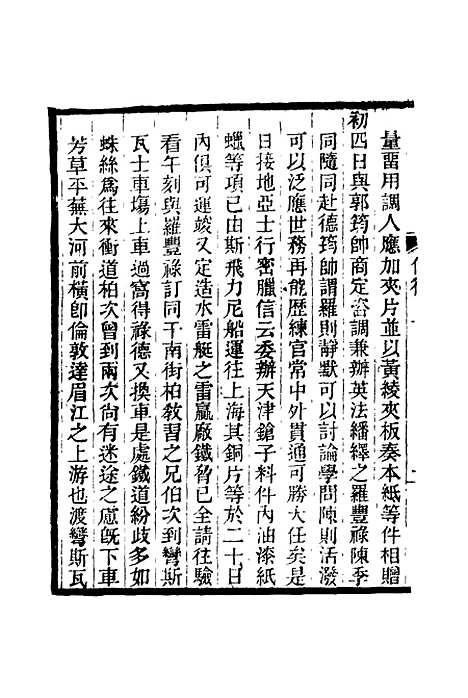 量畱用調人應加夾片並以黃綾夾板奏本紙等件相贈
初四日與郭筠帥商定咨調兼辦英法繙繹之羅豐祿陳季
同隨同赴德筠帥謂羅則靜默可以討論學問陳則活潑
可以泛應世務再能歷練官常中外貫通可勝大任矣是
日接地亞士行密臘信云委辦天津鎗子料件內油漆紙
蠟等項已由斯飛力尼船運往上海其銅片等於二十日
內俱可運竣又定造水雷艇之雷贏厰鐵脅已全請往驗
看午刻與羅豐祿訂同干南街柏敎習之兄伯次到彎斯
瓦士車塲上車過窩得祿德又換車是處鐵道紛歧多如
蛛絲爲往來衝道柏次曾到兩次尙有迷途之慮旣下車
芳草平蕪大河前橫卽倫敦達眉江之上游也渡彎斯瓦